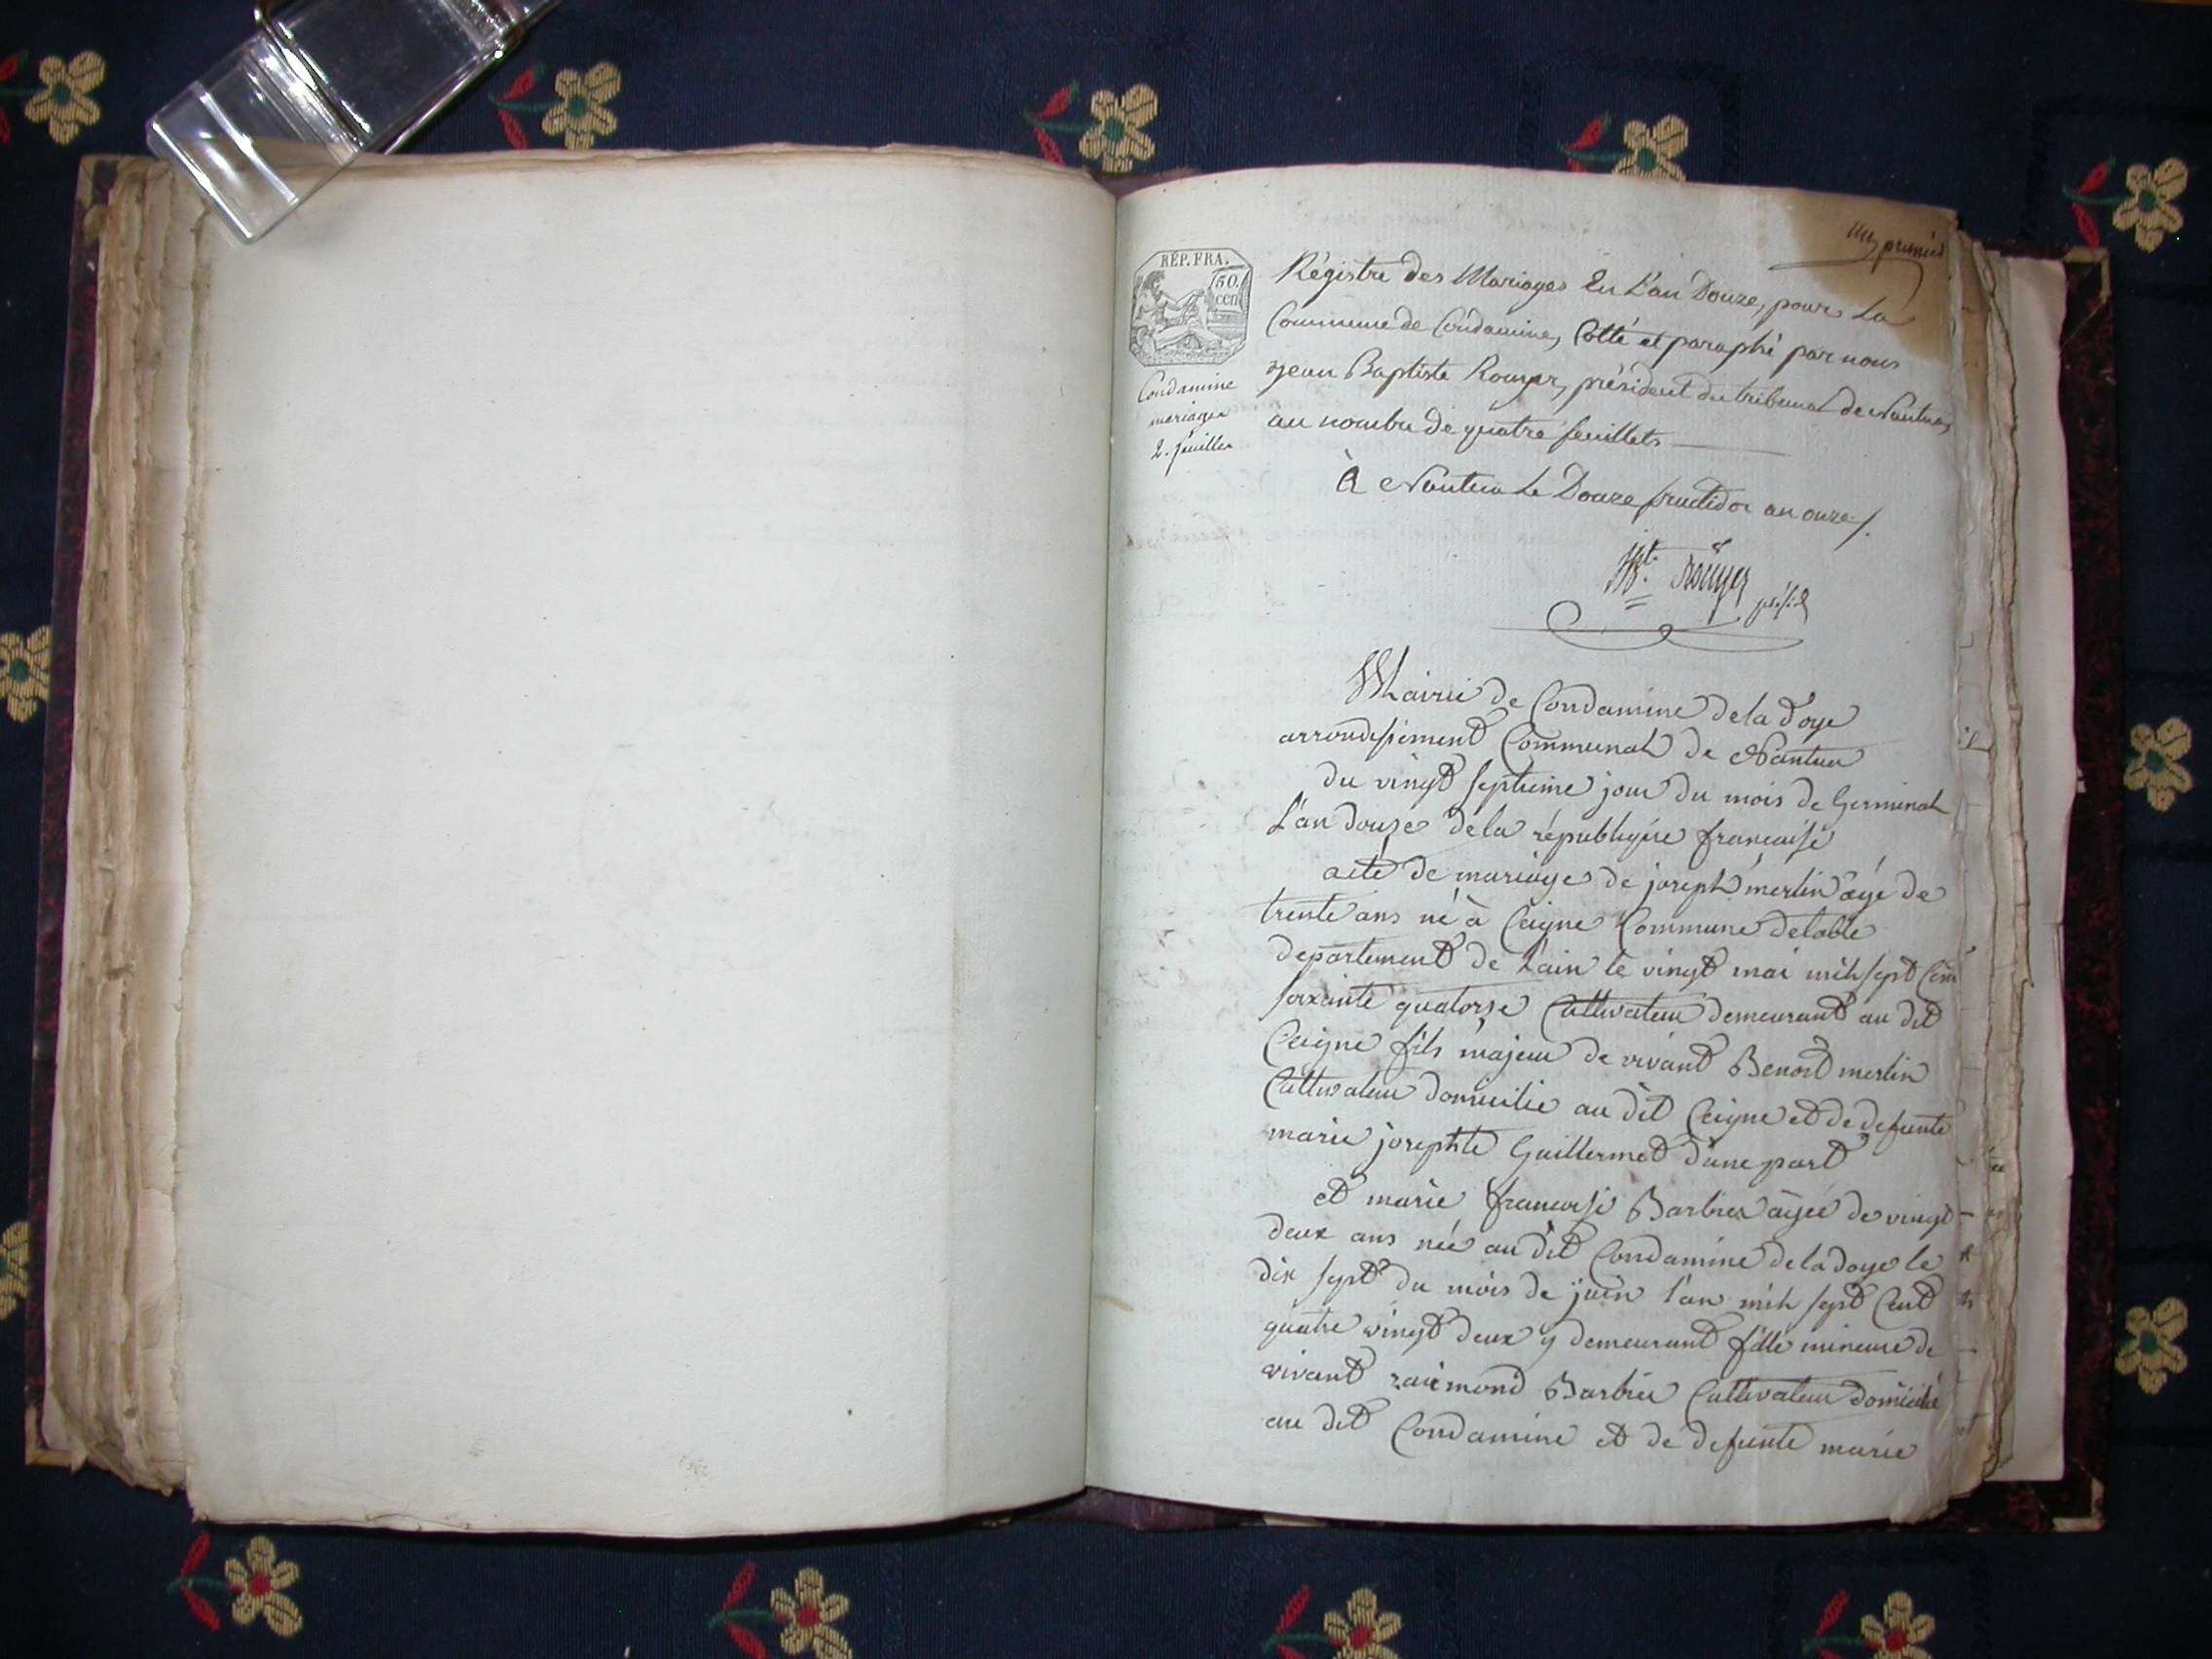 un, premier
RÉP. FRA.
50.
cen
Condamine
mariages
2. feuilles
Régistre des Mariages En L'an Douze, pour La
Commune de Condamine, Cotté et paraphé par nous
Jean Baptiste Rouyer, président du tribunal de Nantua,
au nombre de quatre feuillets
À Nantua Le Douze fructidor an onze /.
JBte. Rouyer
présid
Mairie de Condamine de la doye
arrondissement Communal de Nantua
du vingt septieme jour du mois de Germinal
L'an douze de la république française
acte de mariage de joseph merlin âgé de
trente ans né à Ceigne Commune delable
departement de Lain le vingt mai mil sept Cent
soixante quatorze Cultivateur demeurant au dit
Ceigne fils majeur de vivant Benoit merlin
Cultivateur domicilié au dit Ceigne et de defunte
marie josephte Guillermet d'une part
et marie francoise Barbier âgée de vingt
deux ans née au dit Condamine de la doye le
dix sept du mois de juin l'an mil sept Cent
quatre vingt deux y demeurant fille mineure de
vivant raimond Barbier Cultivateur domicilié
au dit Condamine et de defunte marie